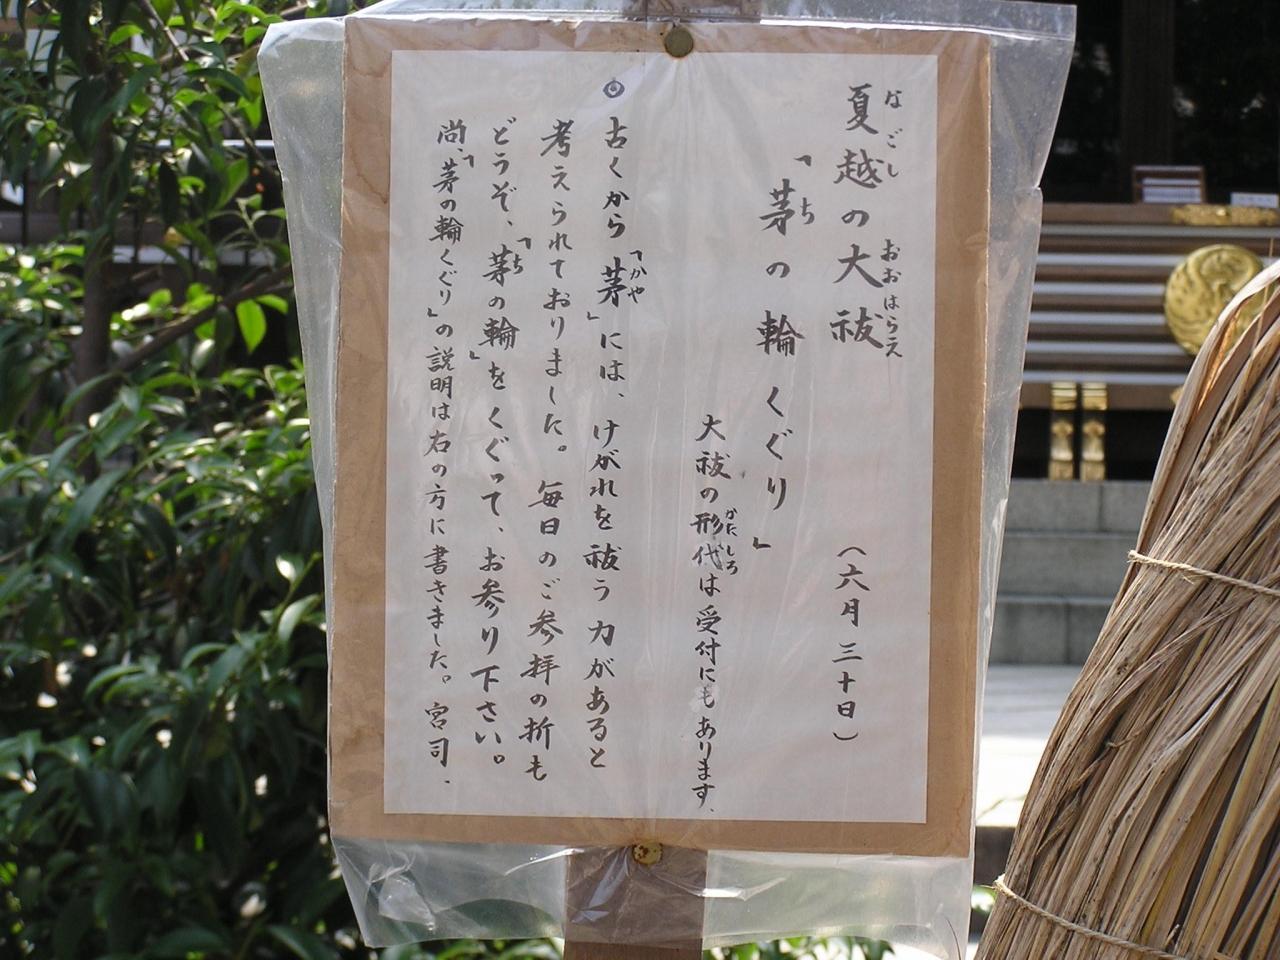 夏越の大祓 (六月三十日)
なごし おおはらえ
「茅の輪くぐり」
ち
大祓の形代は受付にもあります、
かたしろ
◎古くから「茅」には、けがれを祓う力があると
かや
考えられておりました。毎日のご参拝の折も
どうぞ、「茅の輪」をくぐって、お参り下さい。
ち
尚、「茅の輪くぐり」の説明は右の方に書きました。宮司、